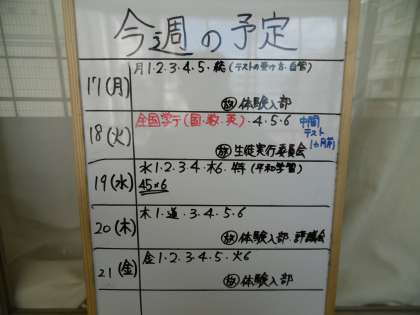 今週の予定
17(月)
月1・2・3・4・5・総(テストの受け方・自習)
放 体験入部
18(火)
全国学テ(国・数・英)・4・5・6
中間テスト1ヵ月前
放 生徒実行委員会
19(水)
水1・2・3・4・木6・特(平和学習)
45×6
20(木)
木1・道・3・4・5・6
放 体験入部・評議会
21(金)
金1・2・3・4・5・火6
放 体験入部